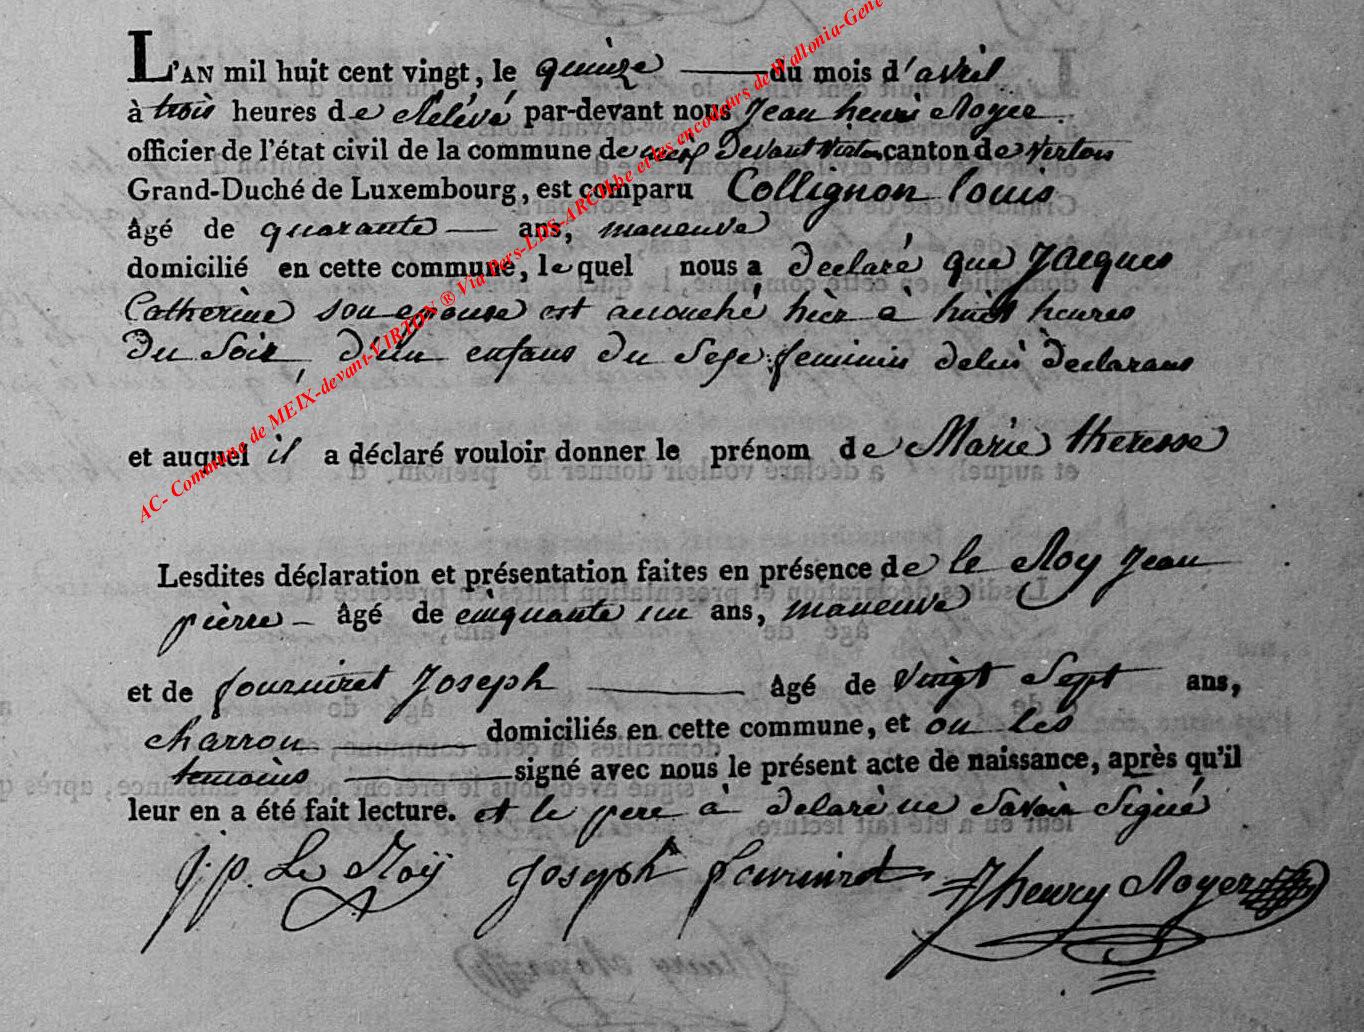 L'AN mil huit cent vingt, le quinze du mois d'avril
à trois heures de rélévé par-devant nous Jean henri Noyer
officier de l'état civil de la commune de meix Devant Virton canton de Virton
Grand-Duché de Luxembourg, est comparu Collignon louis
âgé de quarante ans, maneuve
domicilié en cette commune, le quel nous a declaré que Jacques
Catherine son epouse est acouché hièr à huit heures
Du Soir, d'un enfans du Sexe feminin de lui declarans
et auquel il a déclaré vouloir donner le prénom de Marie theresse
Lesdites déclaration et présentation faites en présence de le Roy Jean
pièrre âgé de cinquante un ans, maneuve
et de fourniret Joseph âgé de vingt Sept ans,
charron domiciliés en cette commune, et on les
temoins signé avec nous le présent acte de naissance, après qu'il
leur en a été fait lecture. et le pere à delarè ne Savoir Signé
j. p. Le Roÿ Joseph fourniret Jhenry Noyer
AC- Commune de MEIX-devant-VIRTON ® Via Pers-LDS-ARCH.be et les encodeurs de Wallonia-Gene